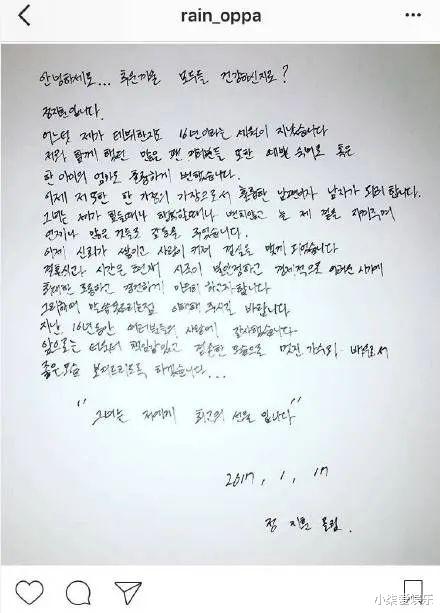 rain_oppa
안녕하세요... 추운겨울 모두들 건강하신지요?
정지훈입니다.
어느덧 제가 데뷔한지도 16년이라는 세월이 지났습니다
저와 함께 했던 많은 팬 여러분들 또한 때론 숙녀로 혹은
한 아이의 엄마로 훌륭하게 변했습니다.
이제 저 또한 한 가정의 가장으로서 훌륭한 남편이자 남자가 되려 합니다.
그녀는 제가 힘들때나 행복할때나 변치않고 늘 제 곁을 지켜주며
언제나 많은 것들로 감동을 주었습니다.
이제 신뢰가 쌓이고 사랑이 커져 결실을 맺게 되었습니다
결혼식과 시간은 현재 시국이 불안정하고 경제적으로 어려운 시기에
최대한 조용하고 경건하게 마무리 하고자 합니다
그리하여 말씀못드리는점 이해해 주시길 바랍니다
지난 16년동안 여러분들의 사랑에 감사했습니다
앞으로는 더욱더 책임감있고 겸손한 모습으로 멋진 가수와 배우로서
좋은모습 보여드리도록 하겠습니다...
"그녀는 저에게 최고의 선물 입니다"
2017, 1, 17
정 지훈 올림.
小柒爱娱乐